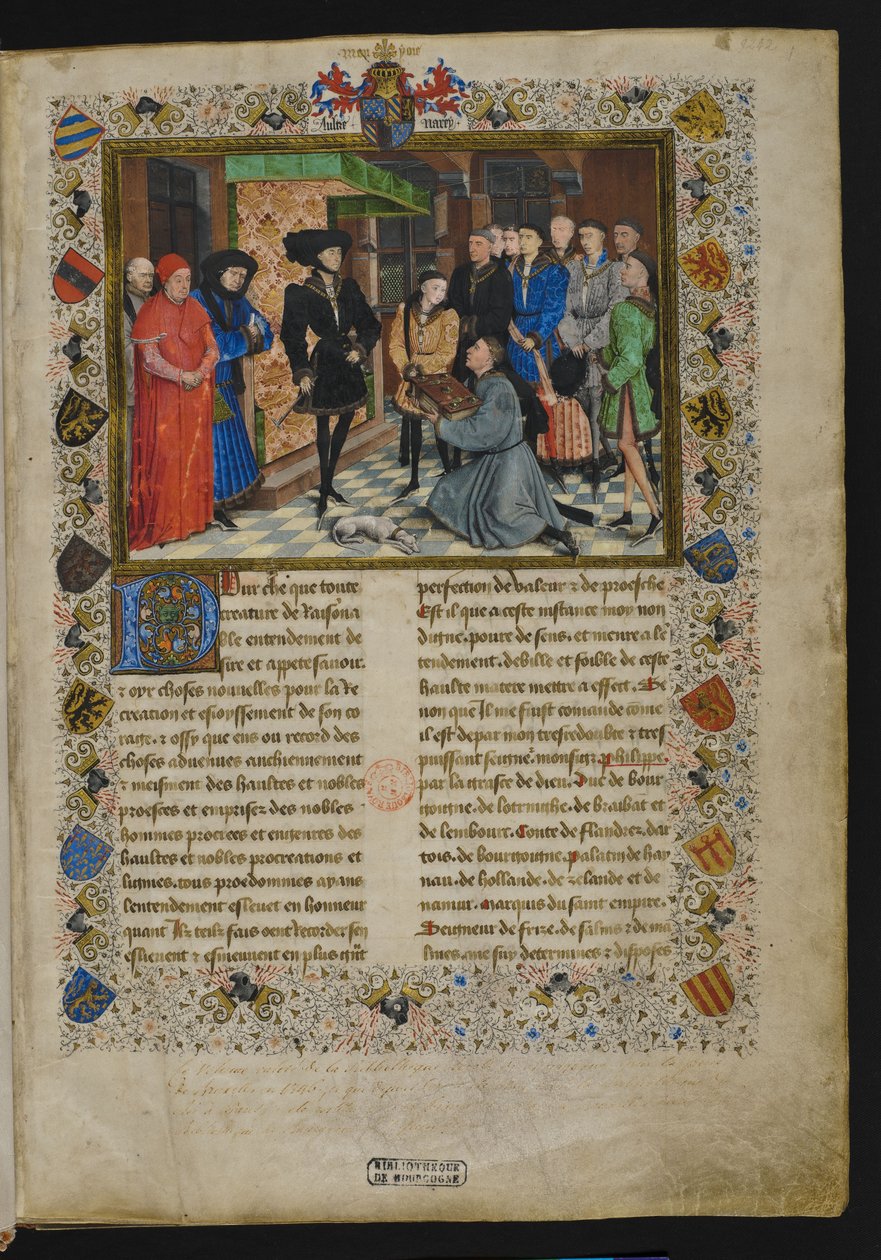 Mon Joie
9242
Aultre Narey
Pour che que toute
creature de Raisona
ble entendement de
sire et appete scauoir
⁊ oyr choses nouuelles pour la Re
creation et esioyssement de son co
rage. ⁊ ossy que ens ou record des
choses aduenues anchiennement
⁊ meisment des haultes et nobles
proesces et emprises des nobles
hommes procrees et engenres des
haultes et nobles procreations et
lignies. tous proedommes ayans
lentendement esleuet en honneur
quant Ilz telz fais oent Recorder sen
eslieuent ⁊ esmeuuent en plus grāt
perfection de valeur ⁊ de proesche
Est il que a ceste instance moy non
digne. poure de sens. et menre dē
tendement. debille et foible de ceste
haulte matere mettre a effect. Se
non que Il me fuist comande cōme
il est de par mon tresredoubte ⁊ tres
puissant seigneʳ. monsigʳ. Phelippe
par la grasce de dieu. Duc de bour
gongne. de lotringhe. de braibat et
de lembourc. Conte de flandrez. dar
tois. de bourgongne. Palatin de hay
nau. de hollande. de zelande et de
namur. Marquis du saint empire.
Seigneur de frize. de salins ⁊ de ma
lines. me suy determines ⁊ disposes
de la Bibliothèque
de Bruxelles en 1746
BIBLIOTHEQUE
DE BOURGOGNE